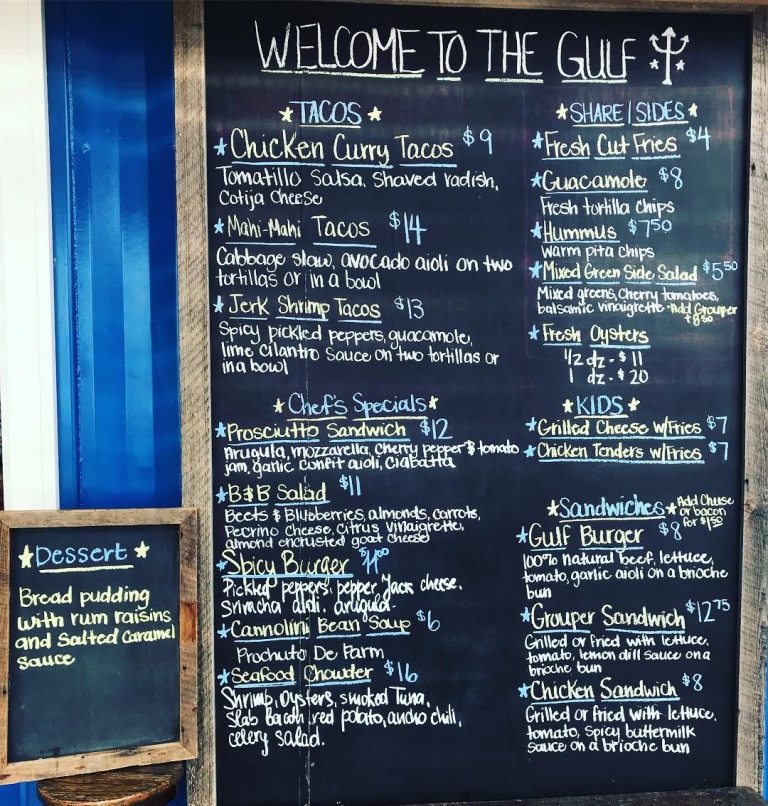 WELCOME TO THE GULF
★ TACOS ★
★Chicken Curry Tacos $9
Tomatillo Salsa, Shaved radish,
Cotija cheese
★Mahi-Mahi Tacos $14
Cabbage slaw, avocado aioli on two
tortillas or in a bowl
★Jerk Shrimp Tacos $13
Spicy pickled peppers, guacamole,
lime cilantro sauce on two tortillas or
in a bowl
★Chef's Specials★
★Prosciutto Sandwich $12
Arugula, mozzarella, cherry pepper & tomato
jam, garlic confit aioli, ciabatta
★B&B Salad $11
Beets & Blueberries, almonds, carrots,
Pecrino cheese, citrus vinaigrette,
almond encrusted goat cheese
★Spicy Burger
Pickled peppers, pepper Jack cheese,
sriracha aioli, arugula.
★Cannolini Bean Soup $6
Prochuto De Parm
★Seafood Chowder $16
Shrimp, Oysters, smoked Tuna,
slab Bacon, red potato, ancho chili,
celery salad.
★SHARE/SIDES★
★Fresh Cut Fries $4
★Guacamole $8
Fresh tortilla chips
★Hummus $7.50
warm pita chips
★Mixed Green Side Salad $5.50
Mixed greens, Cherry tomatoes,
balsamic vinaigrette *Add Grouper
+8.50
★Fresh Oysters
1/2 dz - $11
1 dz - $20
★KIDS★
★Grilled Cheese w/Fries $7
★Chicken Tenders w/Fries $7
★Sandwiches★ Add Cheese
or bacon
for $1.50
★Gulf Burger $8
100% natural beef, lettuce,
tomato, garlic aioli on a brioche
bun
★Grouper Sandwich $12.75
Grilled or fried with lettuce,
tomato, lemon dill sauce on a
brioche bun
★Chicken Sandwich $8
Grilled or fried with lettuce,
tomato, spicy buttermilk
sauce on a brioche bun
★Dessert★
Bread pudding
with rum raisins
and salted caramel
sauce